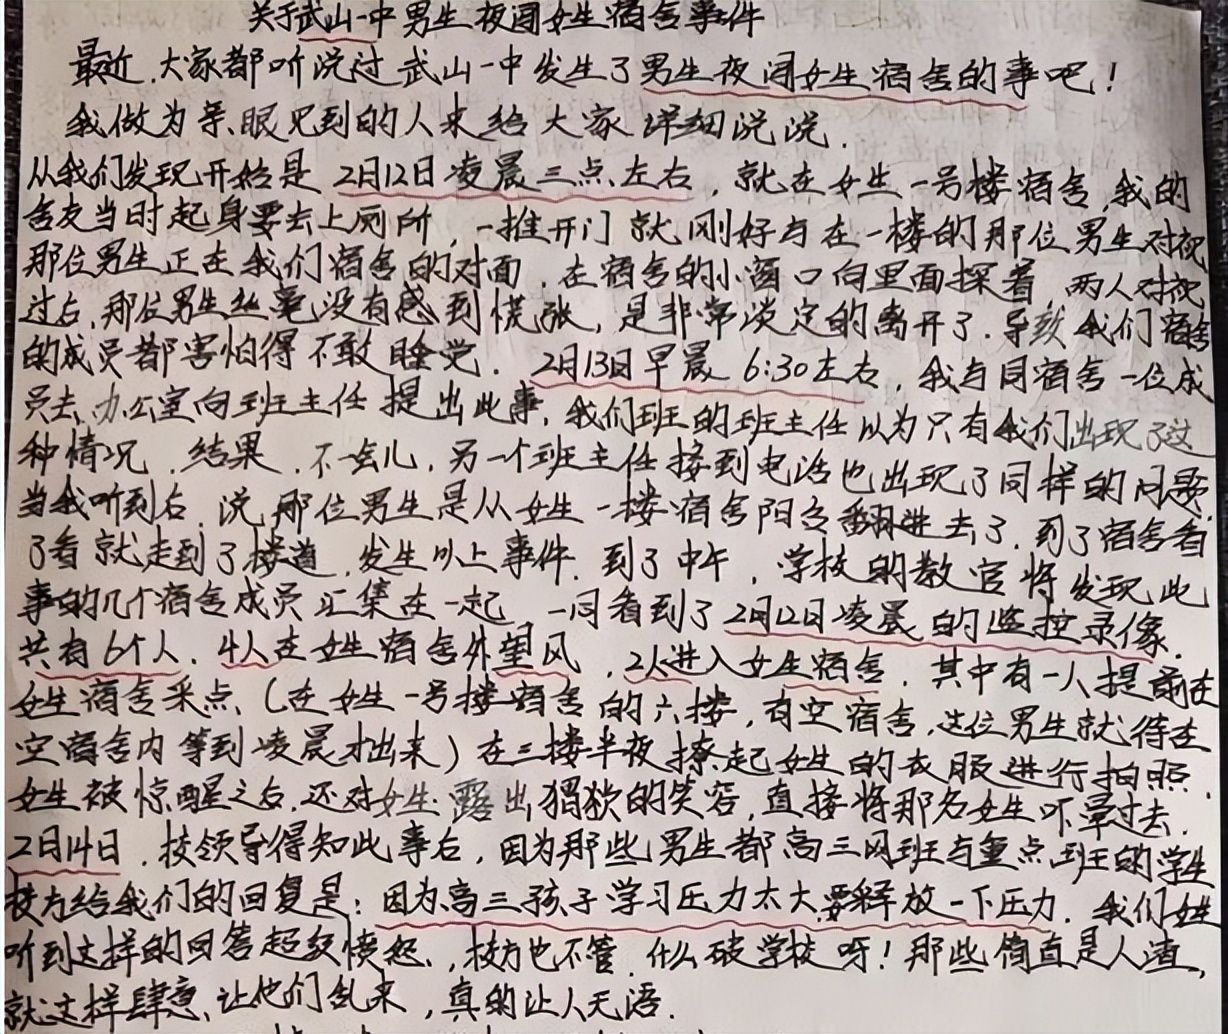 关于武山一中男生夜闯女生宿舍事件
最近,大家都听说过武山一中发生了男生夜闯女生宿舍的事吧!
我做为亲眼见到的人来给大家详细说说.
从我们发现开始是2月12日凌晨三点左右,就在女生一号楼宿舍,我的
舍友当时起身要去上厕所,一推开门就刚好与在一楼的那位男生对视
那位男生正在我们宿舍的对面,在宿舍的小窗口向里面探着,两人对视
过后,那位男生丝毫没有感到慌张,是非常淡定的离开了.导致我们宿舍
的成员都害怕得不敢睡觉.2月13日早晨6:30左右,我与同宿舍一位成
员去办公室向班主任提出此事,我们班的班主任以为只有我们出现了这
种情况,结果,不一会儿,另一个班主任接到电话也出现了同样的问题.
当我听到后,说那位男生是从女生一楼宿舍阳台翻进去了,到了宿舍看
了看就走到了楼道,发生以上事件.到了中午,学校的教官将发现此
事的几个宿舍成员汇集在一起,一同看到了2月12日凌晨的监控录像.
共有6个人,4人在女生宿舍外望风,2人进入女生宿舍,其中有一人提前在
女生宿舍采点(在女生一号楼宿舍的六楼,有空宿舍,这位男生就待在
空宿舍内等到凌晨才出来)在三楼半夜撩起女生的衣服进行拍照,
女生被惊醒之后,还对女生露出猥琐的笑容,直接将那名女生吓晕过去.
2月14日,校领导得知此事后,因为那些男生都高三网班与重点班的学生
校方给我们的回复是:因为高三孩子学习压力太大要释放一下压力.我们女生
听到这样的回答超级愤怒,校方也不管.什么破学校呀!那些简直是人渣,
就这样肆意让他们乱来,真的让人无语.